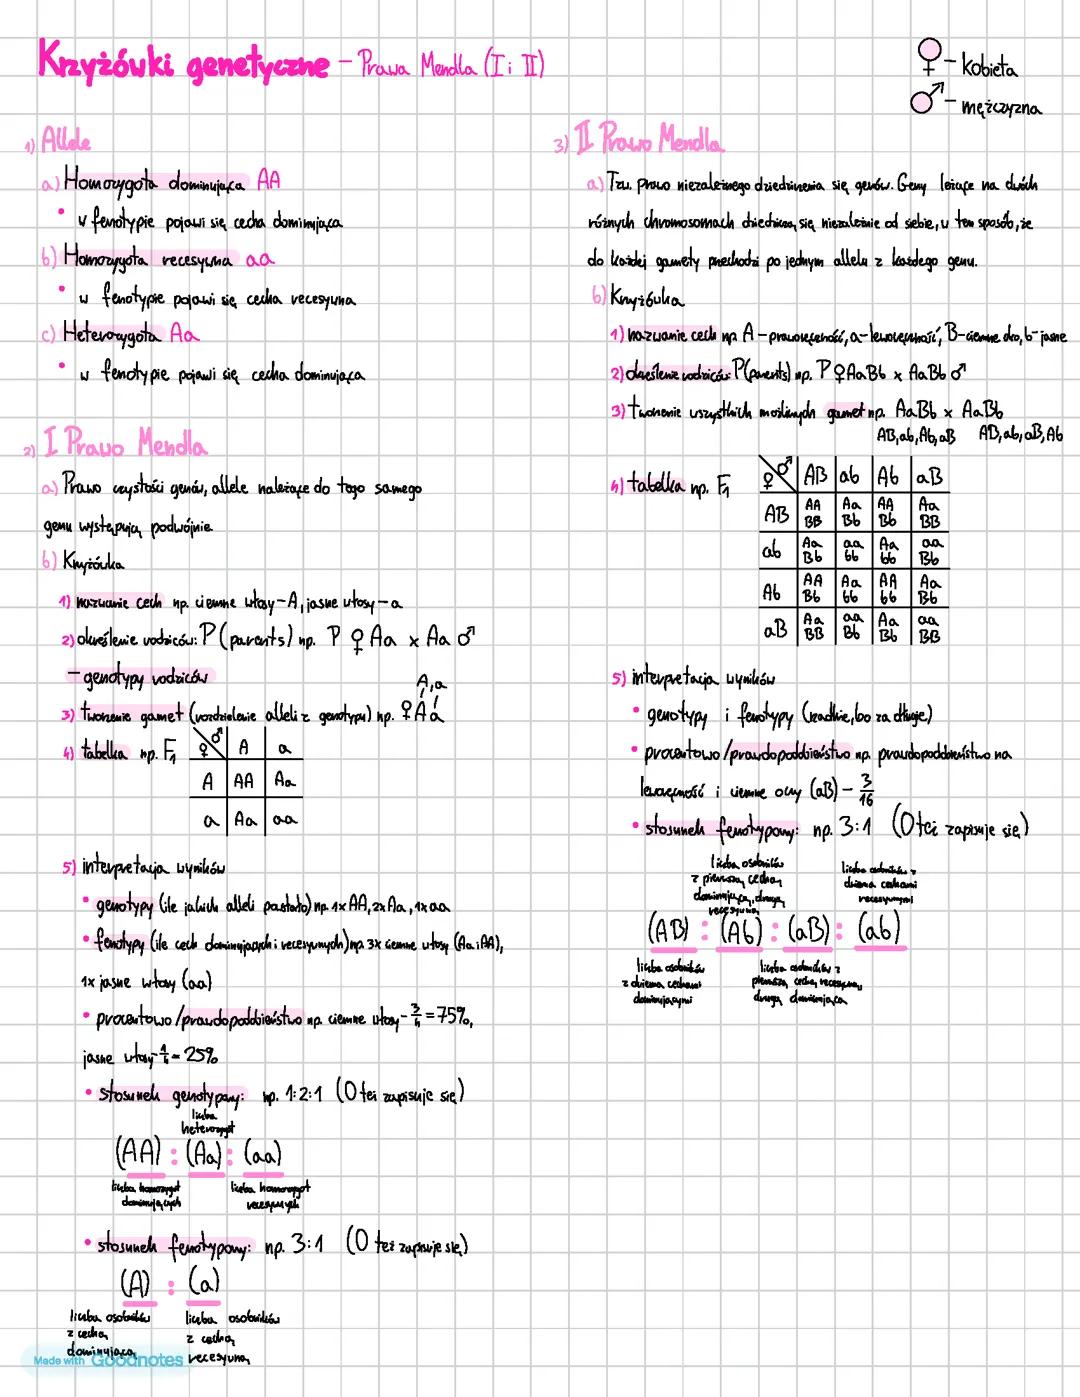 Krzyżówki genetyczne - Prawa Mendla (I i II)
♀ - kobieta
♂ - mężczyzna
1) Allele
a) Homozygota dominująca AA
• w fenotypie pojawi się cecha dominująca
b) Homozygota recesywna aa
• w fenotypie pojawi się cecha recesywna
c) Heterozygota Aa
• w fenotypie pojawi się cecha dominująca
2) I Prawo Mendla
a) Prawo czystości genów, allele należące do tego samego
genu występują podwójnie
b) Krzyżówka
1) nazwanie cech np. ciemne włosy - A, jasne włosy - a
2) określenie rodziców: P (parents) np. P ♀ Aa x Aa ♂
- genotypy rodziców
A, a
3) tworzenie gamet (rozdzielenie alleli z genotypu) np. ♀ Aa
4) tabelka np. F1
♀ ♂ A a
A AA Aa
a Aa aa
5) interpretacja wyników
• genotypy (ile jakich alleli powstało) np. 1x AA, 2x Aa, 1x aa
• fenotypy (ile cech dominujących i recesywnych) np. 3x ciemne włosy (Aa i AA),
1x jasne włosy (aa)
• procentowo / prawdopodobieństwo np. ciemne włosy - 3/4 = 75%,
jasne włosy - 1/4 = 25%
• stosunek genotypowy: np. 1:2:1 (0 też zapisuje się)
liczba
heterozygot
(AA) : (Aa) : (aa)
liczba homozygot
dominujących
liczba homozygot
recesywnych
• stosunek fenotypowy: np. 3:1 (0 też zapisuje się)
(A) : (a)
liczba osobników
z cechą
dominującą
liczba osobników
z cechą
recesywną
Made with Goodnotes
3) II Prawo Mendla
a) Tzw. prawo niezależnego dziedziczenia się genów. Geny leżące na dwóch
różnych chromosomach dziedziczą się niezależnie od siebie, w ten sposób, że
do każdej gamety przechodzi po jednym allelu z każdego genu.
b) Krzyżówka
1) nazwanie cech np. A - praworęczność, a - leworęczność, B - ciemne oko, b - jasne
2) określenie rodziców: P (parents) np. P ♀ AaBb x AaBb ♂
3) tworzenie wszystkich możliwych gamet np. AaBb x AaBb
AB, ab, Ab, aB AB, ab, aB, Ab
4) tabelka np. F1
♀ ♂ AB ab Ab aB
AB AABB AaBb AABb AaBB
ab AaBb aabb Aabb aaBb
Ab AABb Aabb AAbb AaBb
aB AaBB aaBb AaBb aaBB
5) interpretacja wyników
• genotypy i fenotypy (rzadkie, bo za długie)
• procentowo / prawdopodobieństwo np. prawdopodobieństwo na
leworęczność i ciemne oczy (aB) - 3/16
• stosunek fenotypowy: np. 3:1 (0 też zapisuje się)
liczba osobników
z pierwszą cechą
dominującą, drugą
recesywną
liczba osobników z
dwiema cechami
recesywnymi
(AB) : (Ab) : (aB) : (ab)
liczba osobników
z dwiema cechami
dominującymi
liczba osobników z
pierwszą cechą recesywną,
drugą dominującą